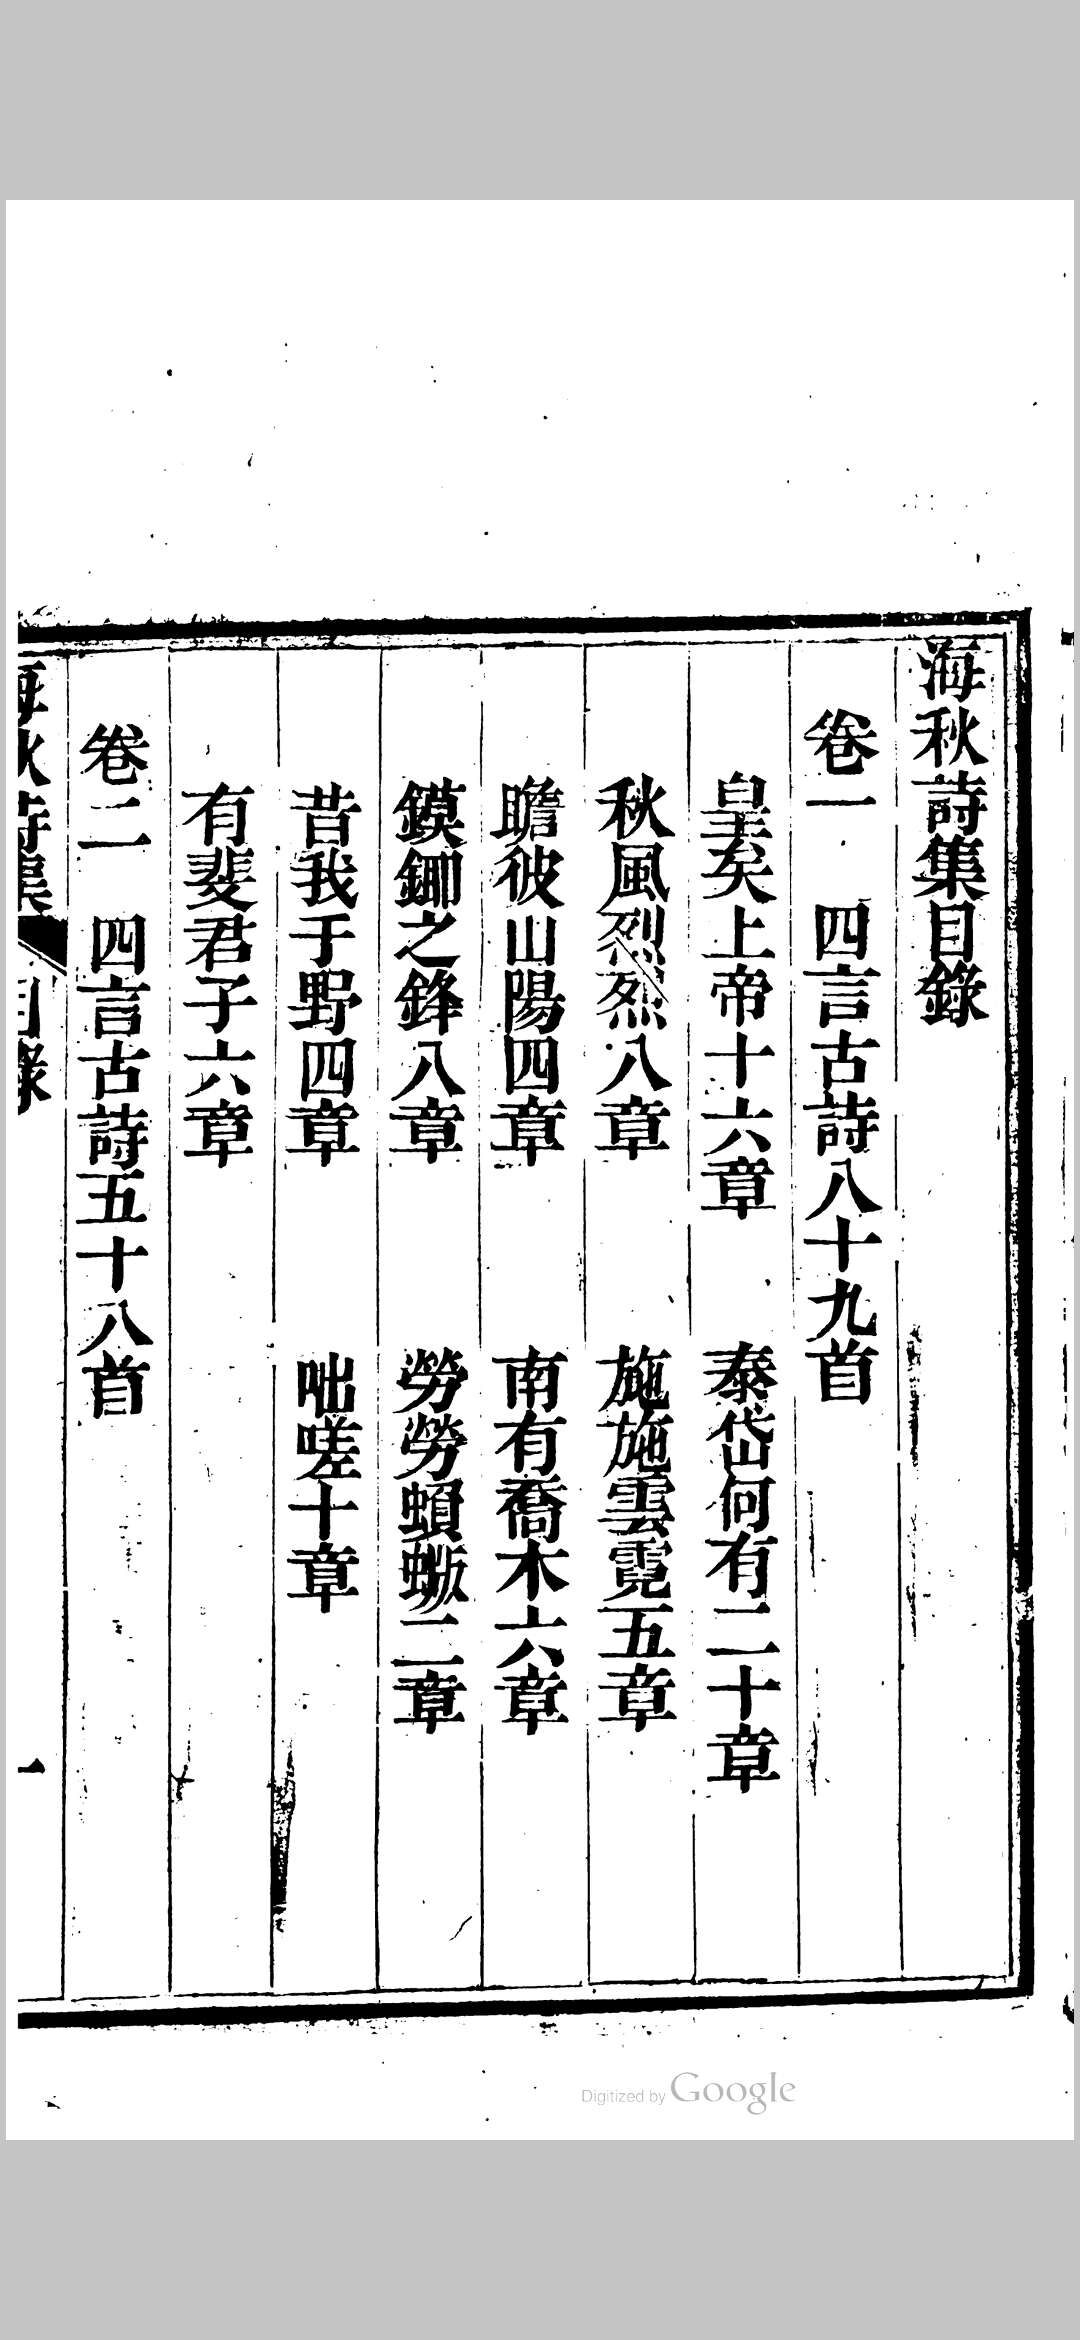 海秋詩集目錄
卷一 四言古詩八十九首
皇矣上帝十六章 泰岱何有二十章
秋風烈烈八章 施施雲霓五章
瞻彼山陽四章 南有喬木六章
鏌鎁之鋒八章 勞勞蝢二章
昔我于野四章 咄嗟十章
有斐君子六章
卷二 四言古詩五十八首
海秋詩集 目錄 一
Digitized by Google